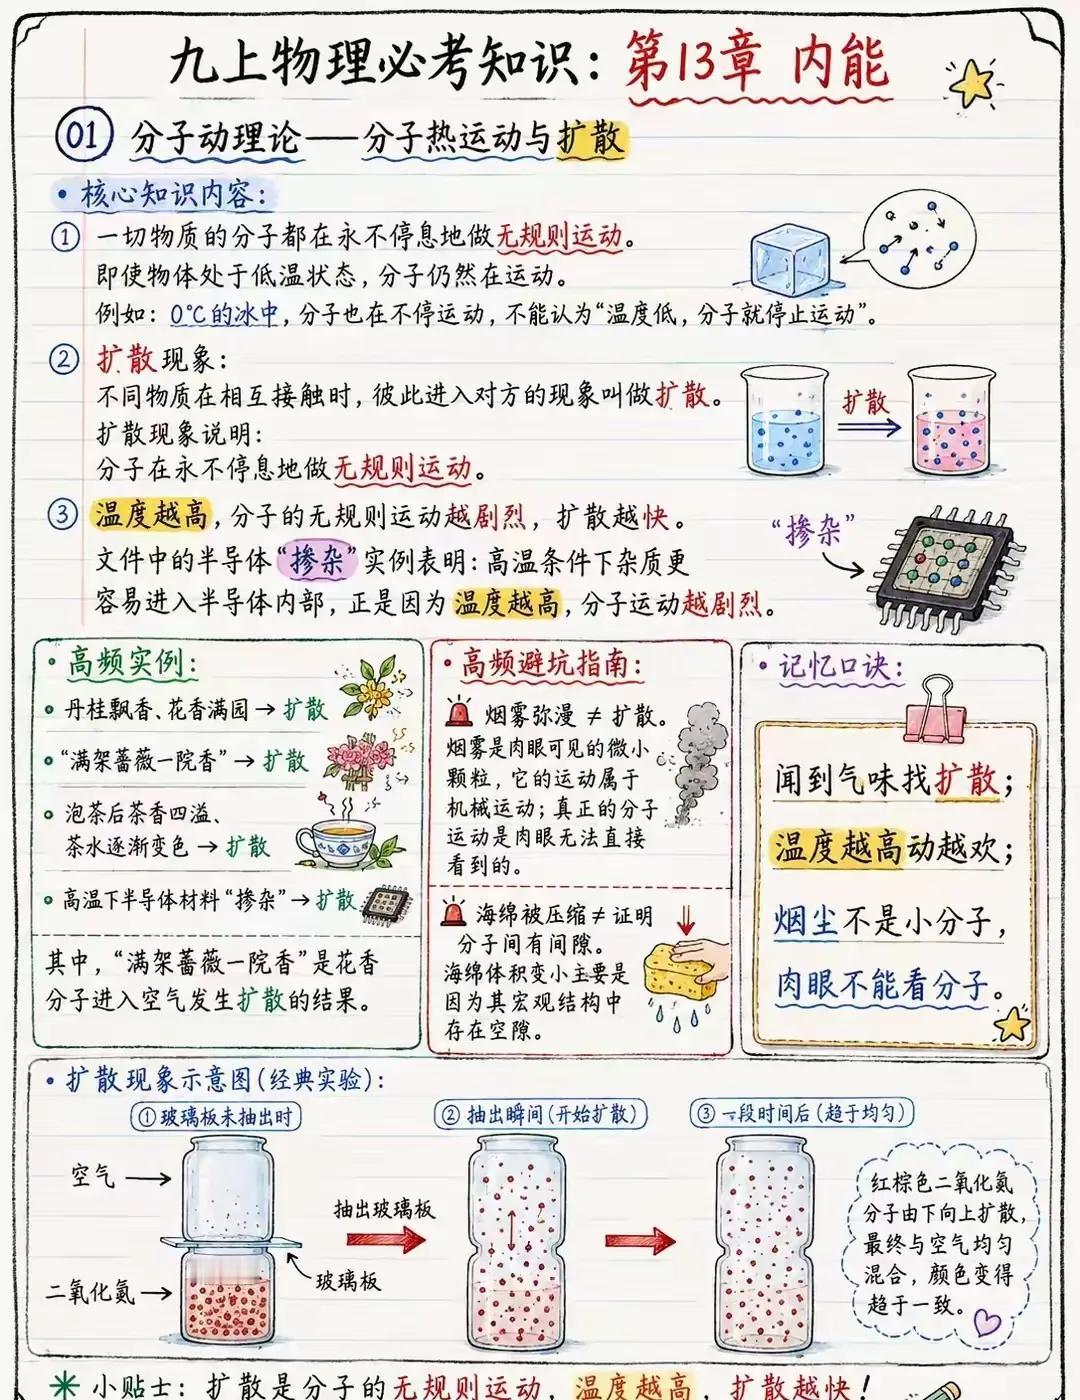 九上物理必考知识：第13章 内能
01 分子动理论——分子热运动与扩散
• 核心知识内容：
① 一切物质的分子都在永不停息地做无规则运动。
即使物体处于低温状态，分子仍然在运动。
例如：0℃的冰中，分子也在不停运动，不能认为“温度低，分子就停止运动”。
② 扩散现象：
不同物质在相互接触时，彼此进入对方的现象叫做扩散。
扩散
扩散现象说明：
分子在永不停息地做无规则运动。
③ 温度越高，分子的无规则运动越剧烈，扩散越快。
文件中的半导体“掺杂”实例表明：高温条件下杂质更
容易进入半导体内部，正是因为温度越高，分子运动越剧烈。
“掺杂”
• 高频实例：
丹桂飘香、花香满园→扩散
“满架蔷薇一院香”→扩散
泡茶后茶香四溢、
茶水逐渐变色→扩散
高温下半导体材料“掺杂”→扩散
其中，“满架蔷薇一院香”是花香
分子进入空气发生扩散的结果。
• 高频避坑指南：
烟雾弥漫≠扩散。
烟雾是肉眼可见的微小
颗粒，它的运动属于
机械运动；真正的分子
运动是肉眼无法直接
看到的。
海绵被压缩≠证明
分子间有间隙。
海绵体积变小主要是
因为其宏观结构中
存在空隙。
• 记忆口诀：
闻到气味找扩散；
温度越高动越欢；
烟尘不是小分子，
肉眼不能看分子。
• 扩散现象示意图（经典实验）：
①玻璃板未抽出时
空气
二氧化氮
玻璃板
抽出玻璃板
② 抽出瞬间（开始扩散）
③ 一段时间后（趋于均匀）
红棕色二氧化氮
分子由下向上扩散，
最终与空气均匀
混合，颜色变得
趋于一致。
小贴士：扩散是分子的无规则运动，温度越高，扩散越快！